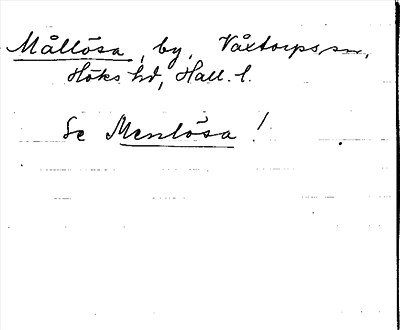 Mållösa, by, Våxtorps sn,
Höks hd, Hall. l.
Se Menlösa !